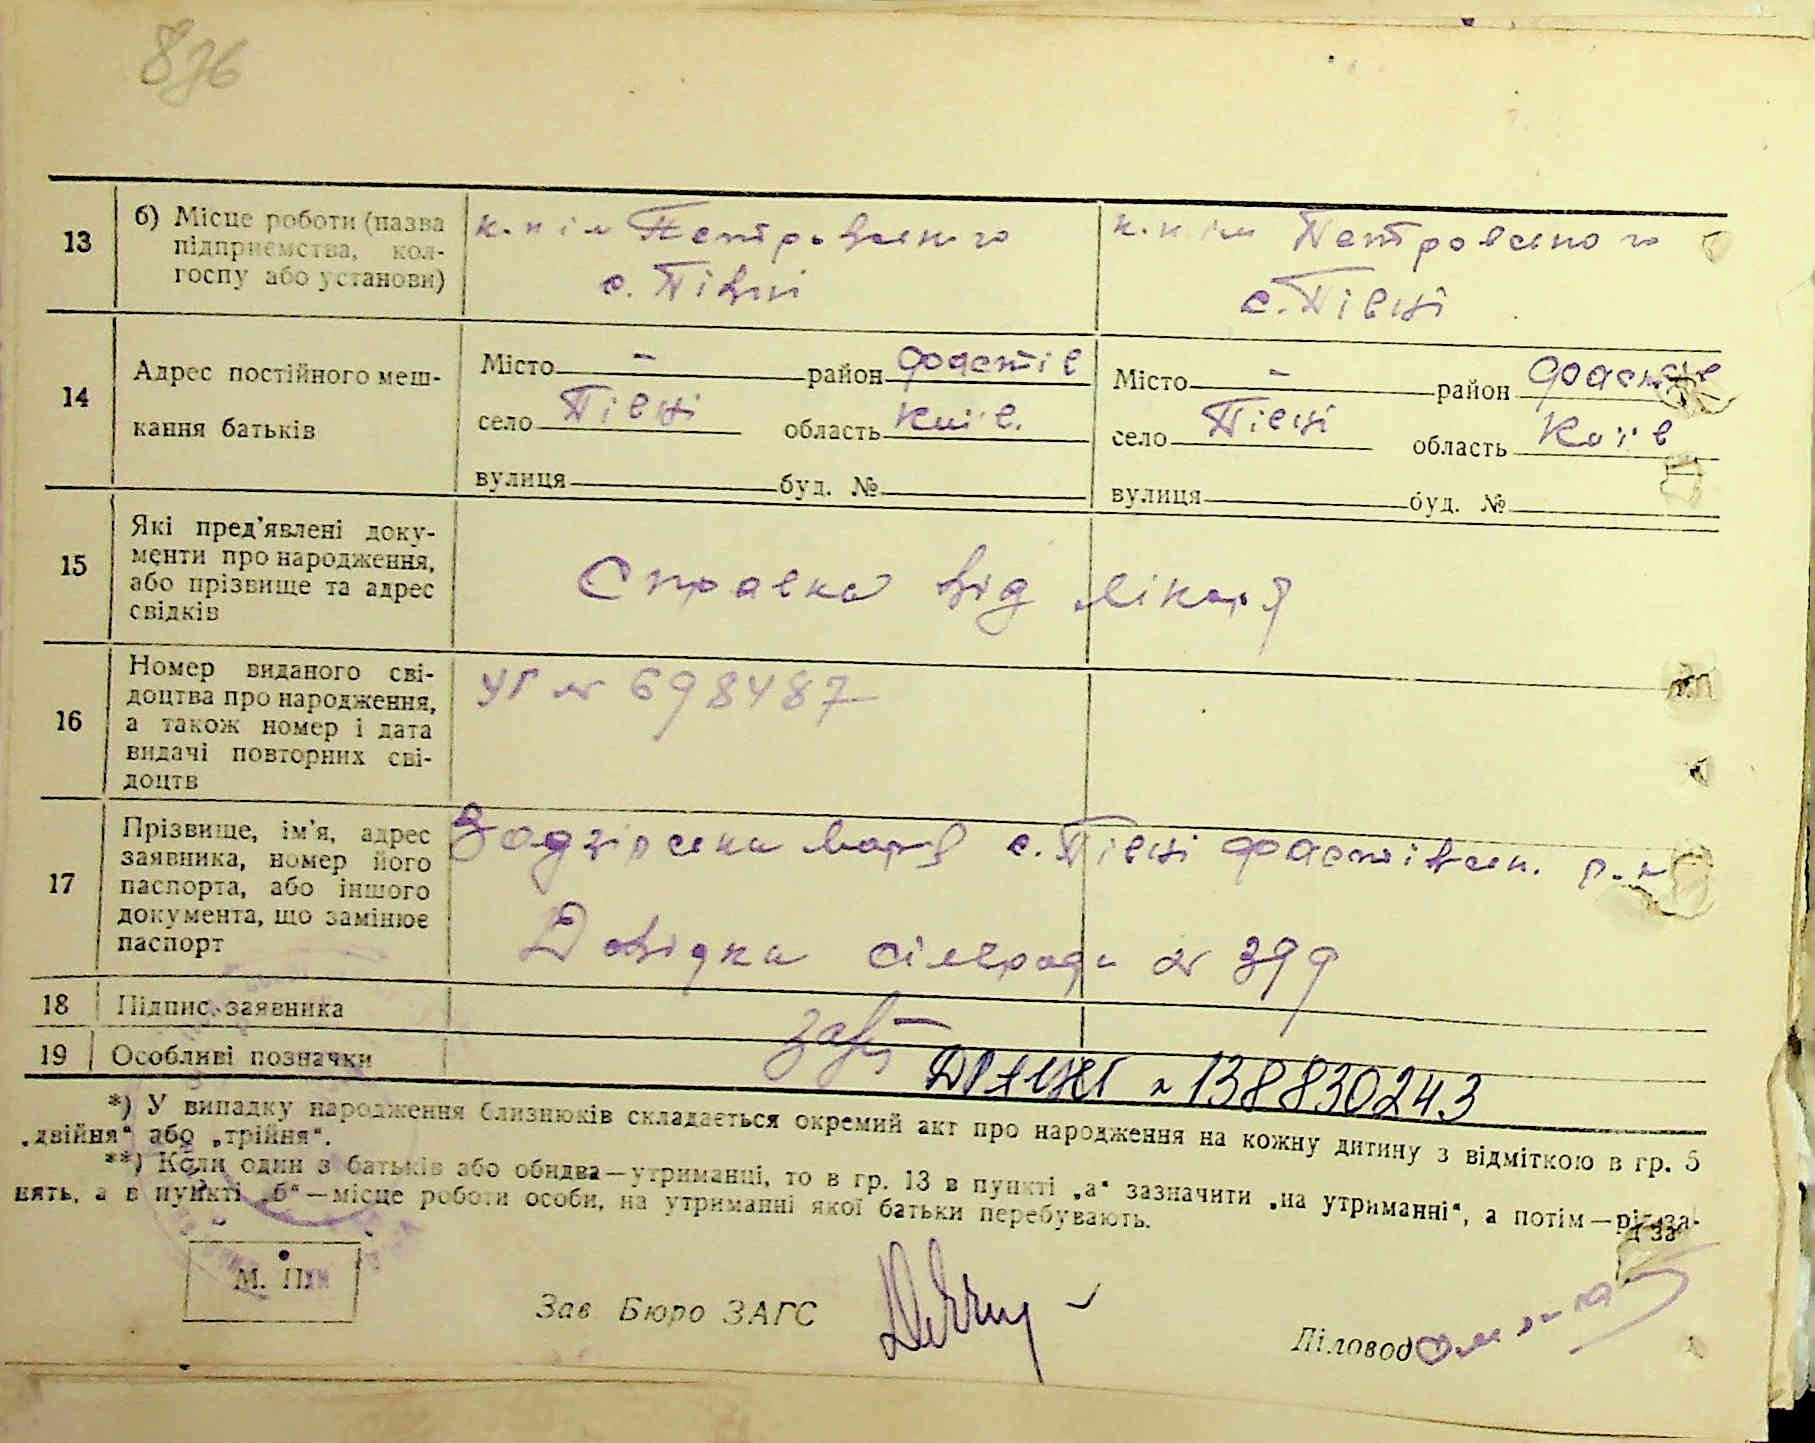 876
13
б) Місце роботи (назва
підприємства, кол-
госпу або установи)
к. п ім Петровського
с. Півні
к. п ім Петровського
с. Півні
14
Адрес постійного меш-
кання батьків
Місто - район Фастів
село Півні область Київ.
вулиця буд. №
Місто - район Фастів
село Півні область Київ
вулиця буд. №
15
Які пред'явлені доку-
менти про народження,
або прізвище та адрес
свідків
Справка від лікаря
16
Номер виданого сві-
доцтва про народження,
а також номер і дата
видачі повторних сві-
доцтв
УГ № 698487
17
Прізвище, ім'я, адрес
заявника, номер його
паспорта, або іншого
документа, що замінює
паспорт
с. Півні Фастівськ. р-н
Довідка сільради № 399
18
Підпис заявника
19
Особливі позначки
№ 138830243
*) У випадку народження близнюків складається окремий акт про народження на кожну дитину з відміткою в гр. 5
„двійня“ або „трійня“.
**) Коли один з батьків або обидва—утриманці, то в гр. 13 в пункті „а“ зазначити „на утриманні“, а потім—рід за-
нять, а в пункті „б“—місце роботи особи, на утриманні якої батьки перебувають.
М. П.
Зав Бюро ЗАГС
Діловод